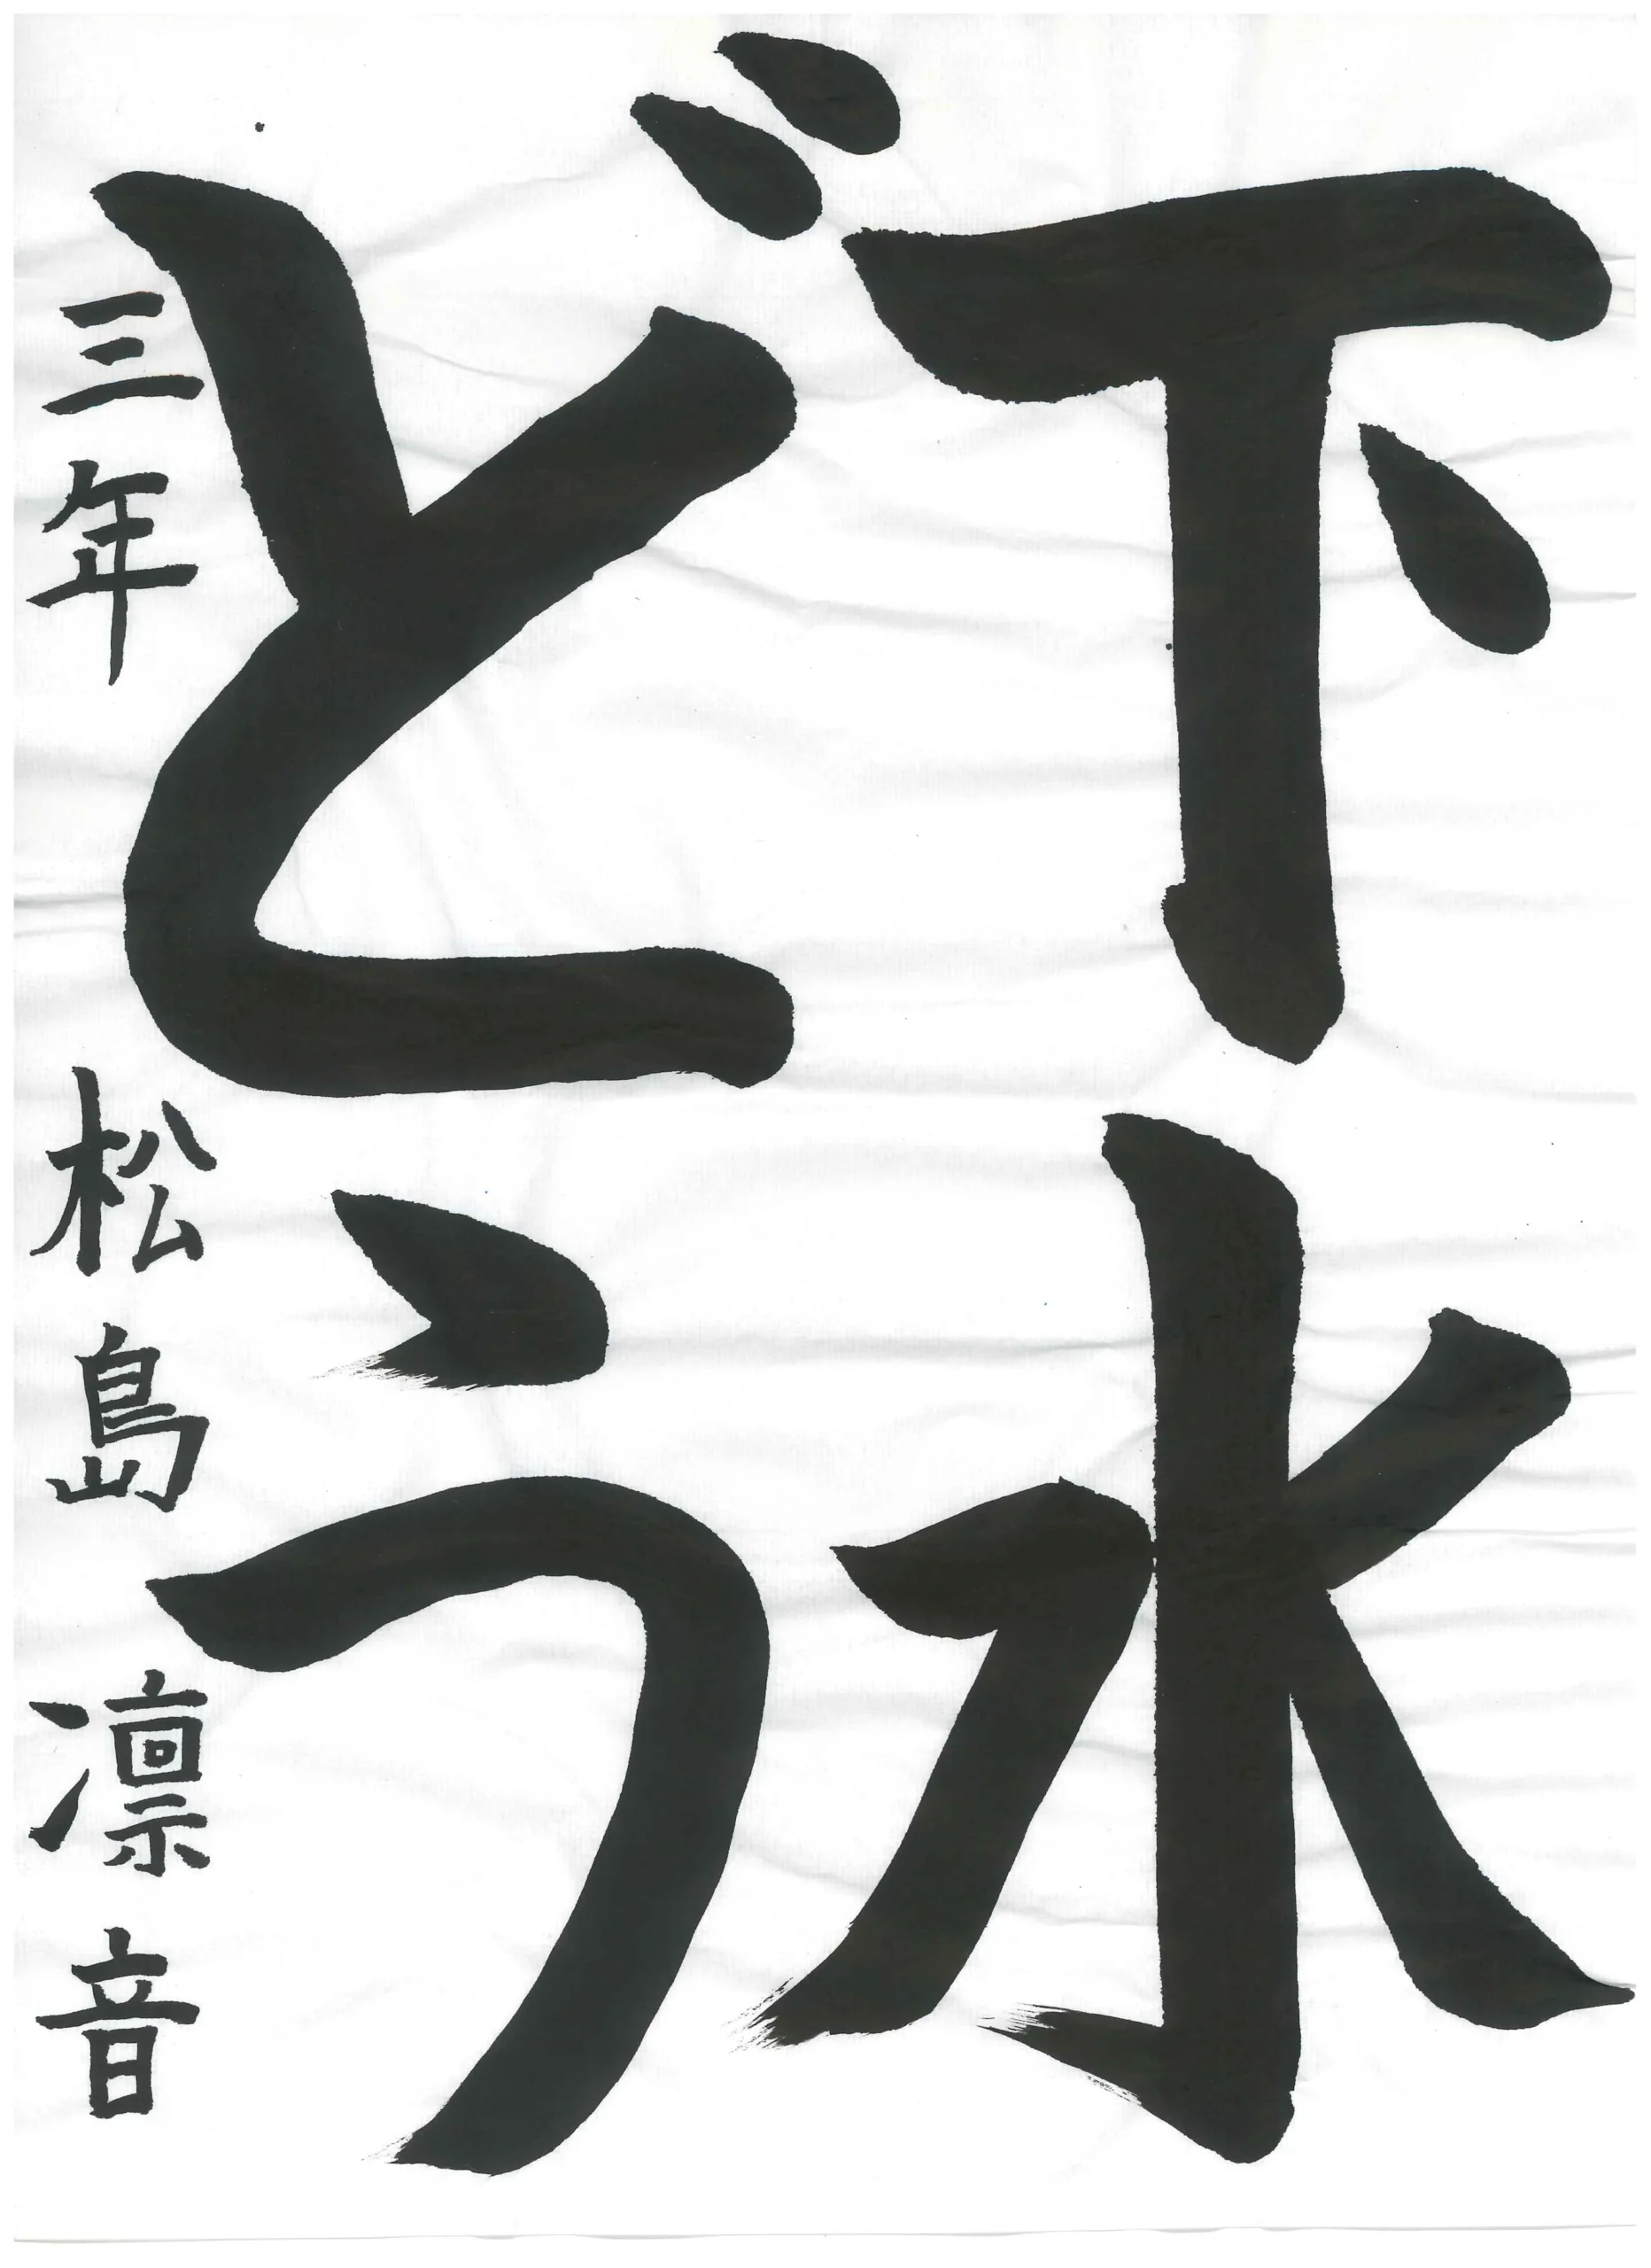 下水
どう
三年 松島凛音